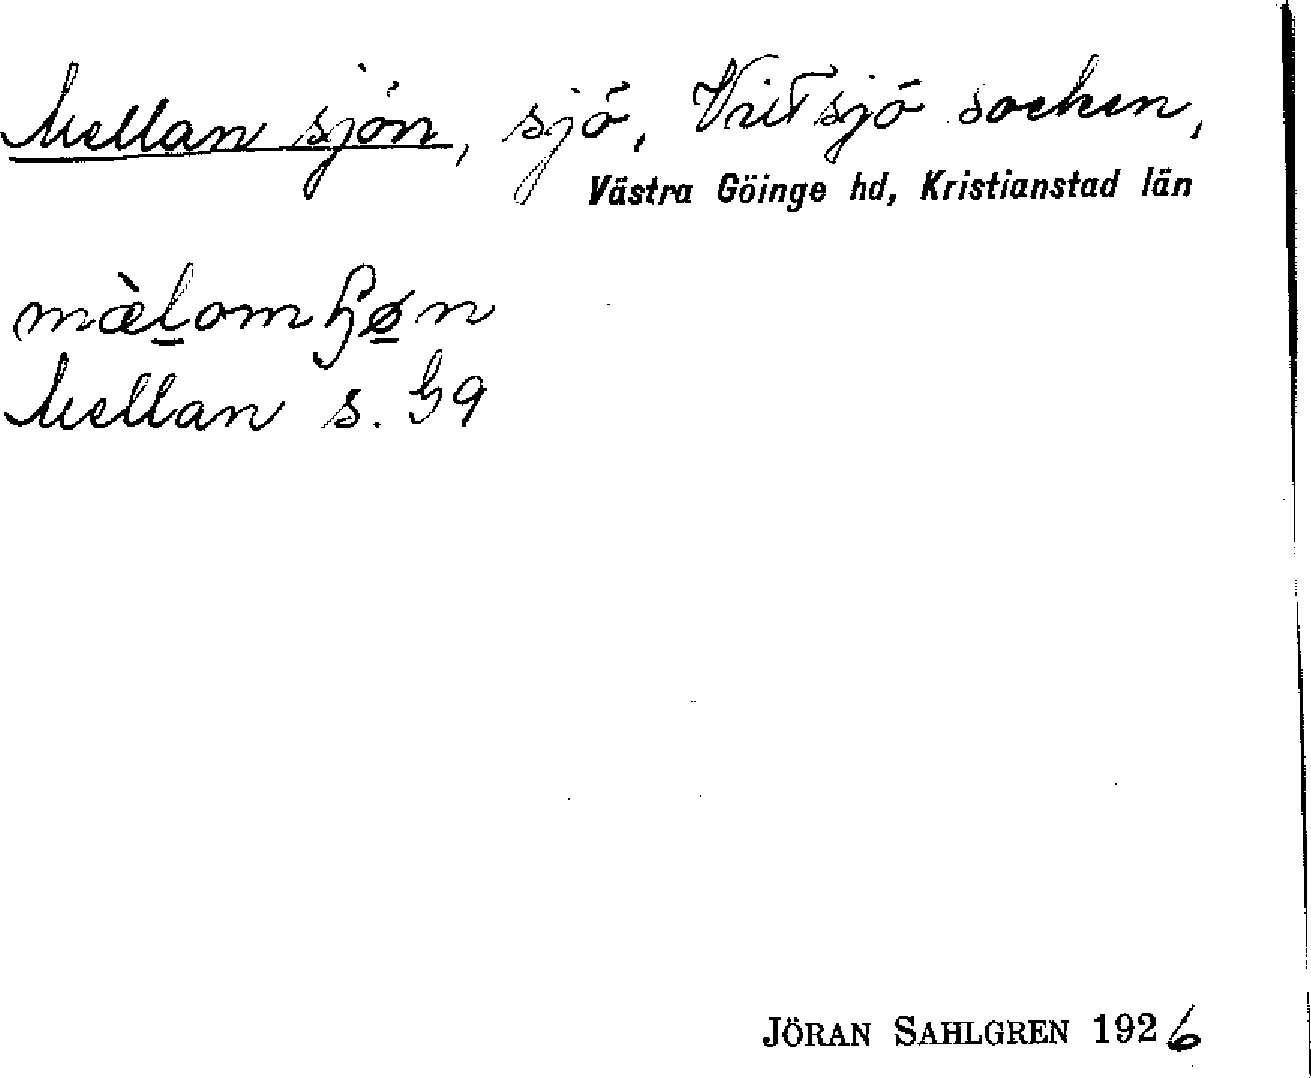 Mellansjön, sjö, Vittsjö socken,
Västra Göinge hd, Kristianstad län
Mellan s. G9
JÖRAN SAHLGREN 1926